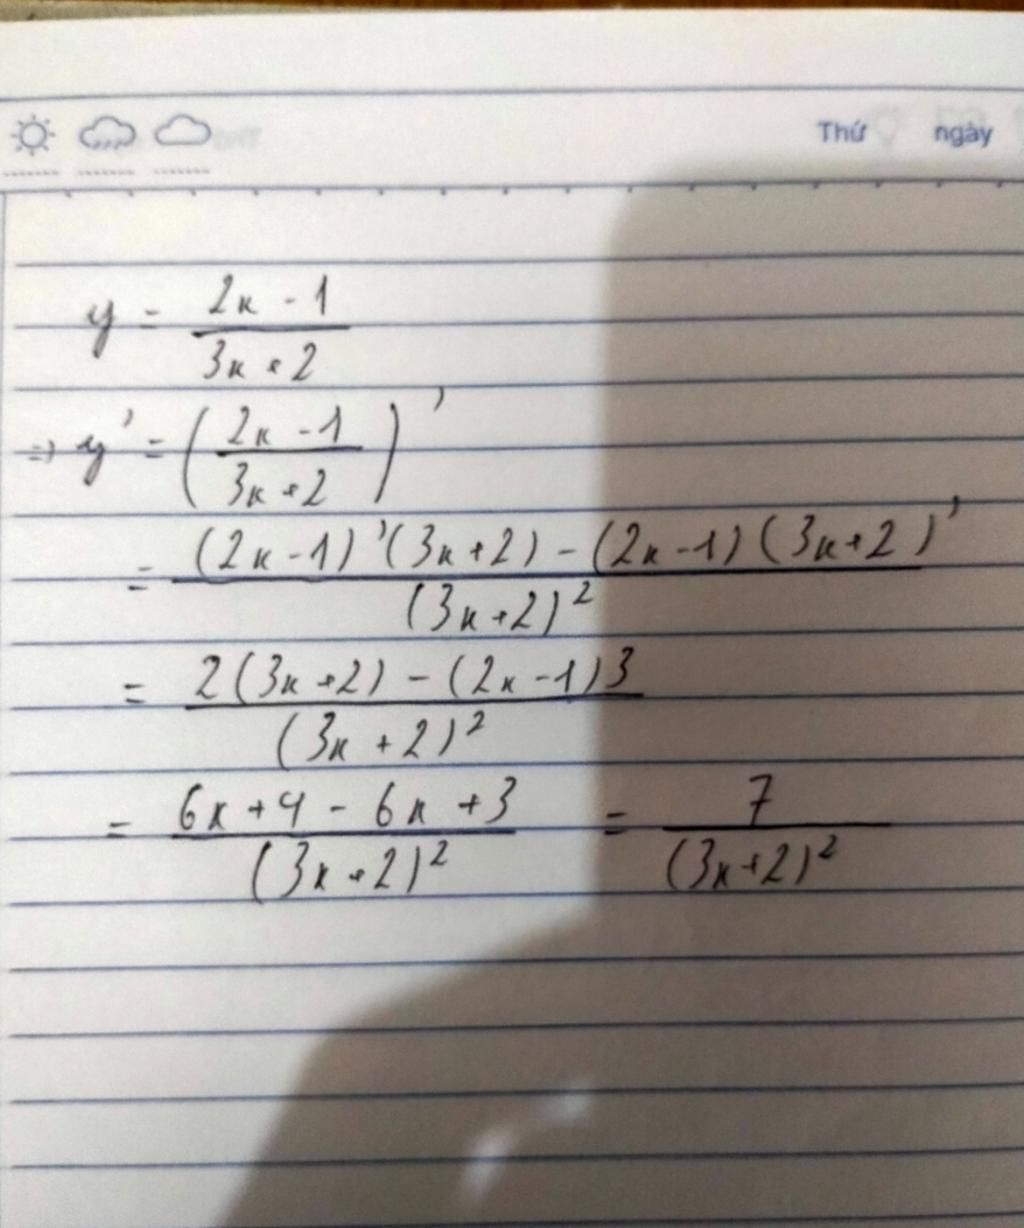 Thứ ngày
y = (2x - 1)/(3x + 2)
=> y' = ((2x - 1)/(3x + 2))'
= ((2x - 1)'(3x + 2) - (2x - 1)(3x + 2)')/(3x + 2)²
= (2(3x + 2) - (2x - 1)3)/(3x + 2)²
= (6x + 4 - 6x + 3)/(3x + 2)² = 7/(3x + 2)²